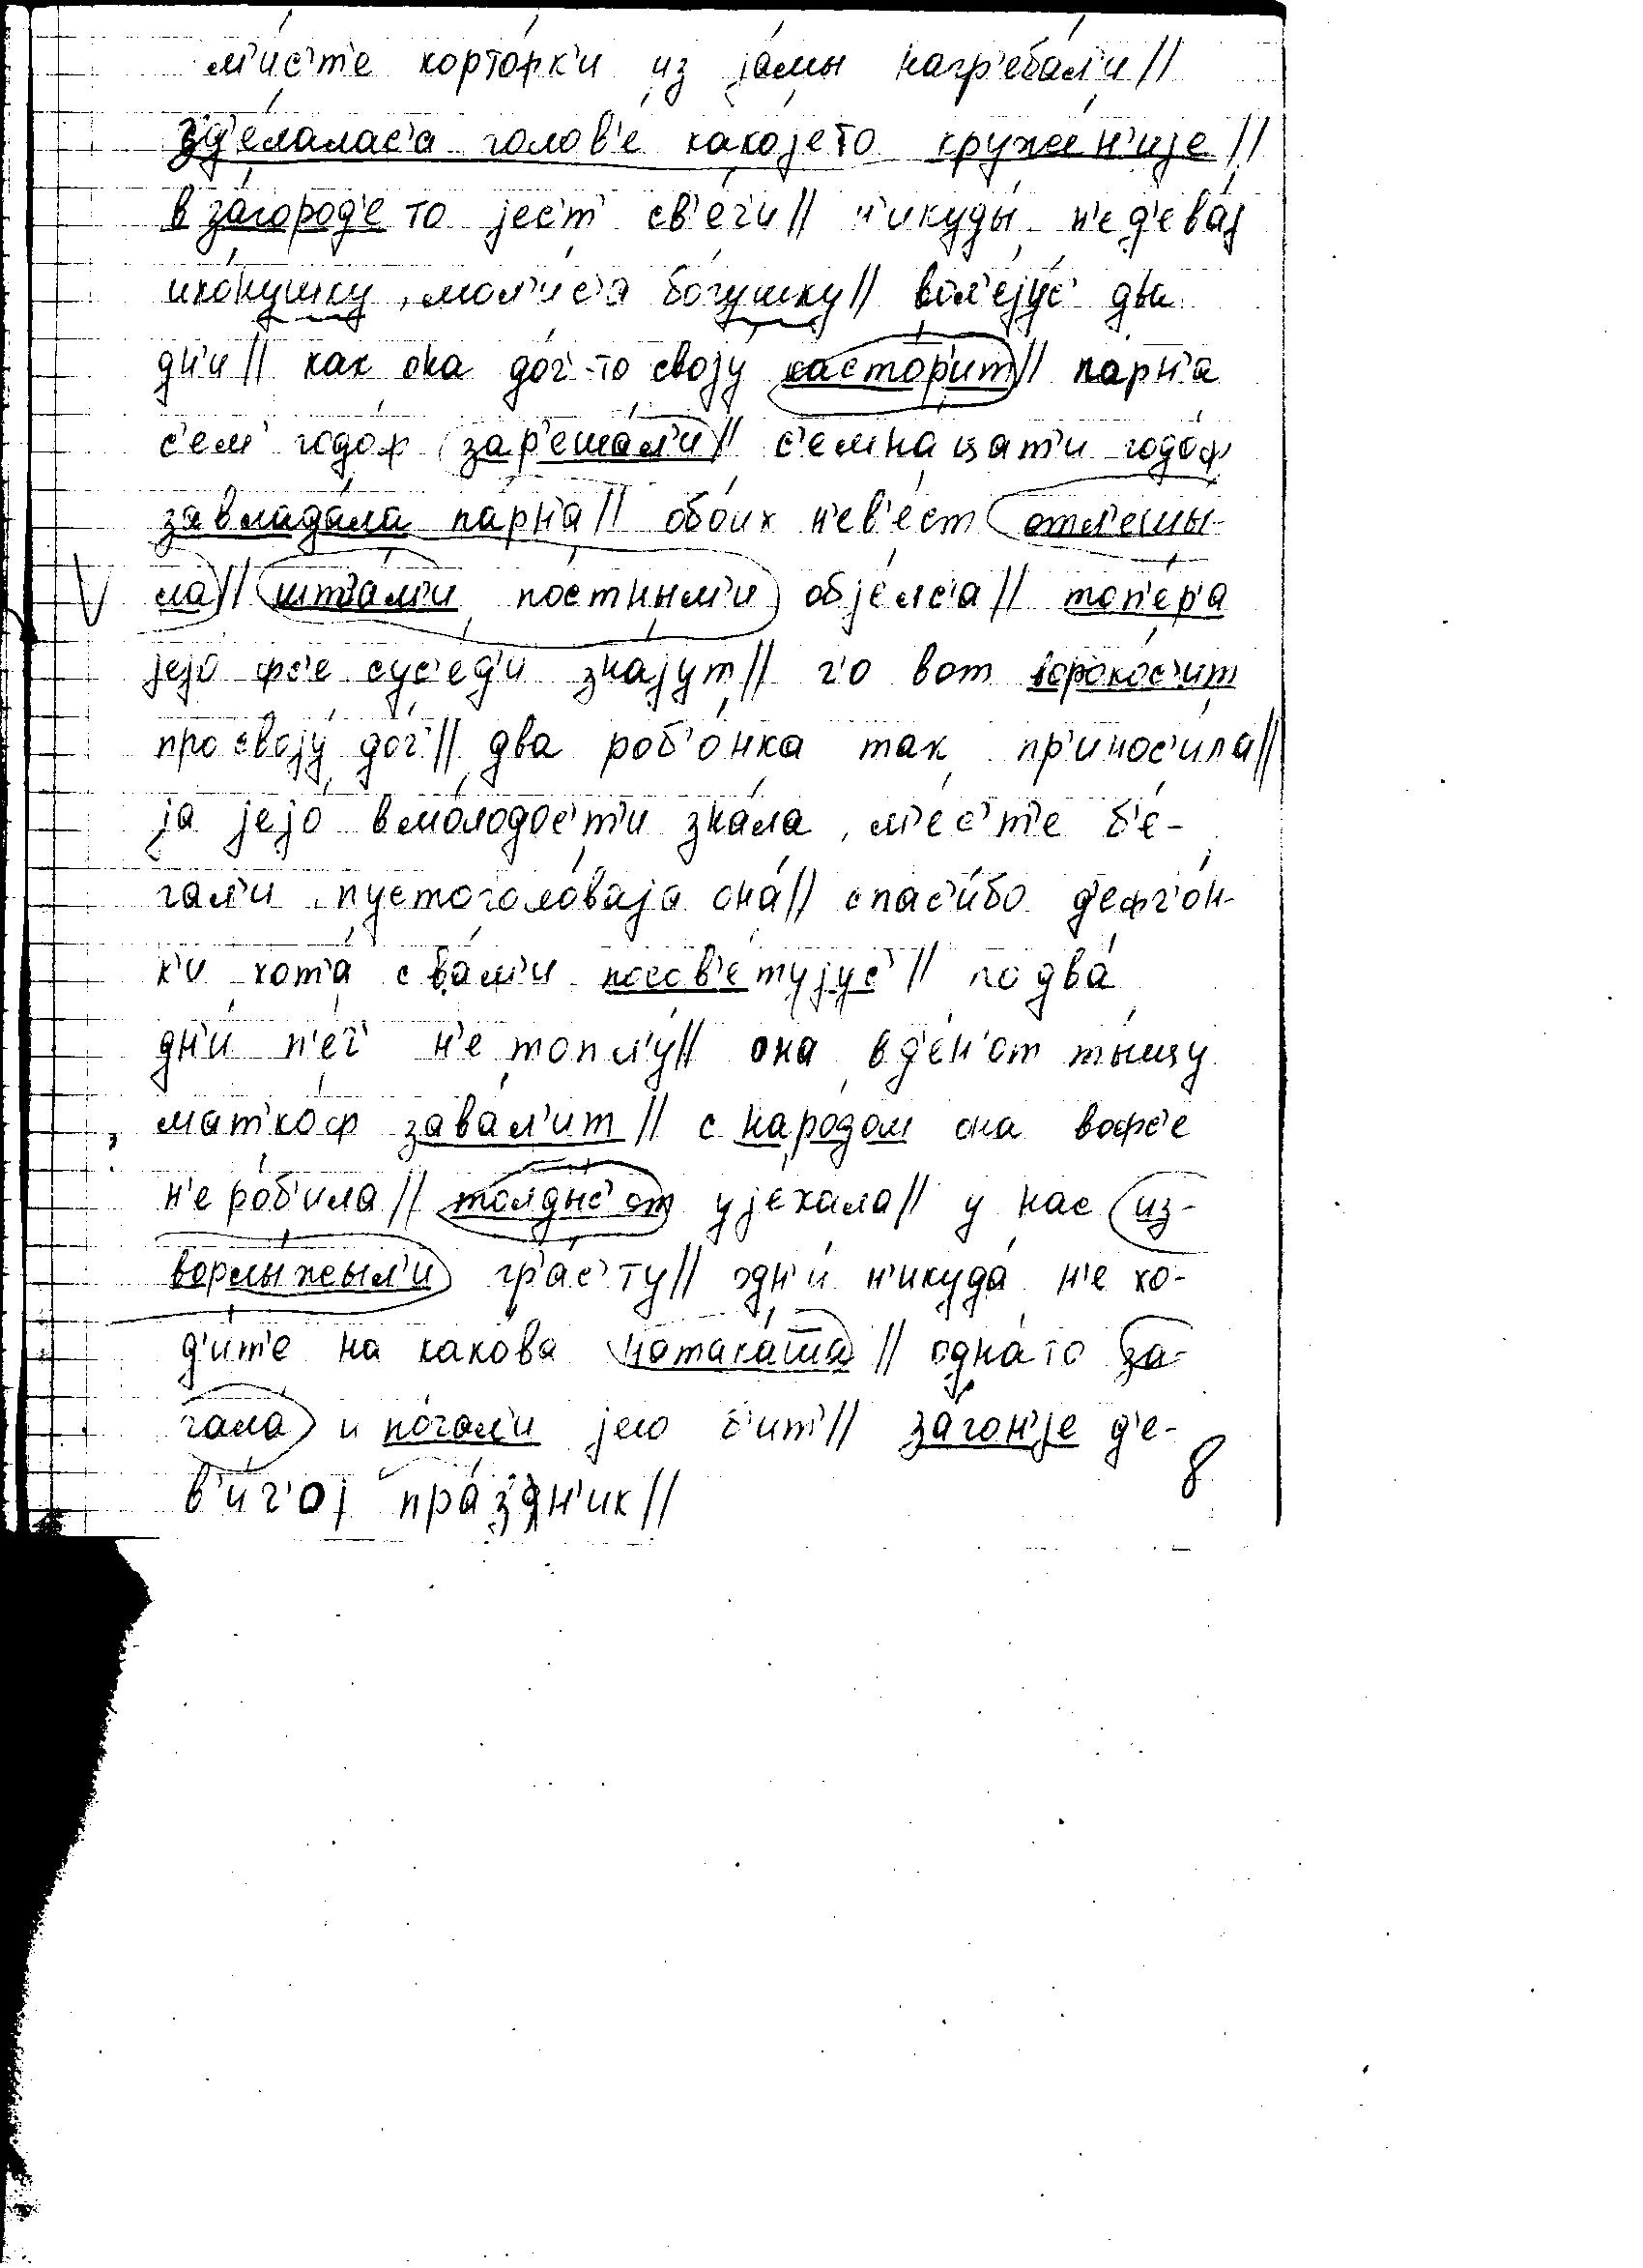 м'ис'т'е кортóрк'и из jáмы нагр'ебáл'и//
зд'éлалас'а голов'é какоjето кружéн'иjе//
в зáгород'е то jес'т' св'éг'и// н'икуды́ н'е д'евáj
икóнушку, мол'и́с'а бóгушку// бол'éjус' два
дн'и// как она доч'-то своjу́ касто́р'ит// парн'а
с'ем' годóф зар'ешáл'и// с'емнáцат'и годóф
завладáла пáрн'а// обóих н'ев'éст отл'ешы-
ла// шт'áм'и пóстным'и обjéлс'а// топ'éр'а
jejó фс'е сус'éд'и знájут// ч'о вот ворокóс'ит
про своjу́ доч'// два роб'óнка так пр'инос'и́ла//
jа jejó в мóлодос'т'и знáла, м'éс'т'е б'é-
гал'и пустоголóваjа онá// спас'и́бо д'ефч'óн-
к'и хот'á с вáм'и посов'éтуjус'// по два́
дн'и п'еч' н'е топл'у́// она в д'éн'от ты́шшу
мат'кóф завáл'ит// с нарóдом она вофс'е
н'е рóб'ила// толды́с'от уjéхала// у нас из-
вормы́жыл'и гр'áс'ту// одн'и́ н'икудá н'е хо-
д'ит'е на какóва натакáт'а// однá то за-
чалá и пóчал'и jeгó б'ит'// загóн'jе д'е-
в'и́ч'оj прáздн'ик//
8